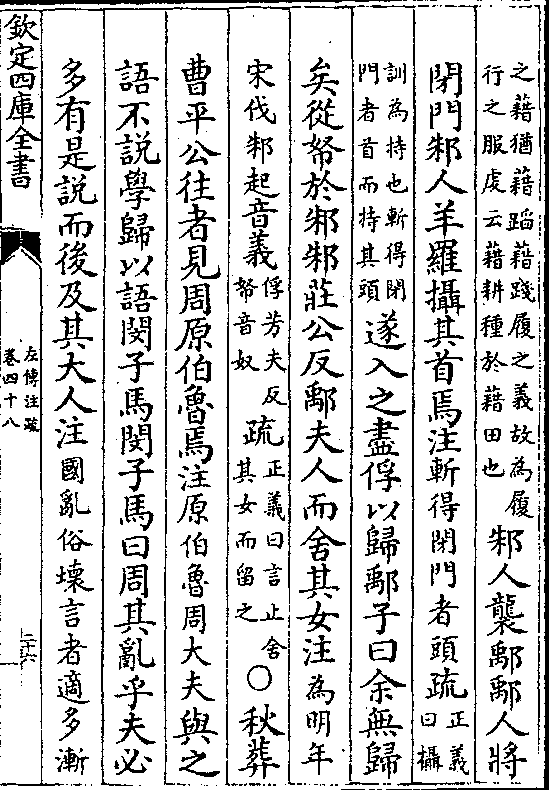 之藉猶藉蹈藉踐履之義故為履
行之服虔云藉耕種於藉田也
邾人襲鄅鄅人將
閉門邾人羊羅攝其首焉注斬得閉門者頭疏
正義
曰攝
訓為持也斬得閉
門者首而持其頭
遂入之盡俘以歸鄅子曰余無歸
矣從帑於邾邾莊公反鄅夫人而舍其女注為明年
宋伐邾起音義
俘芳夫反
帑音奴
疏
正義曰言止舍
其女而留之
○秋葬
曹平公往者見周原伯魯焉注原伯魯周大夫與之
語不說學歸以語閔子馬閔子馬曰周其亂乎夫必
多有是說而後及其大人注國亂俗壞言者適多漸
欽定四庫全書
左傳注疏
卷四十八
二十六